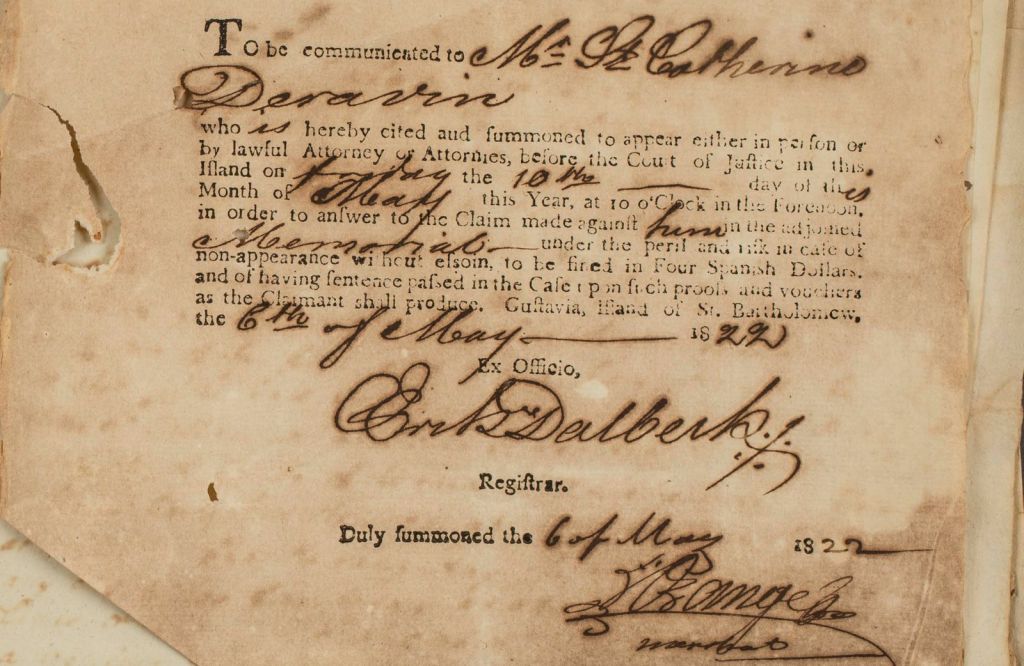 To be communicated to Mr St Catherine
Deravin
who is hereby cited and ſummoned to appear either in perſon or
by lawful Attorney or Attornies, before the Court of Juſtice in this
Iſland on friday the 10th day of this
Month of May this Year, at 10 o'Clock in the Forenoon,
in order to anſwer to the Claim made againſt him in the adjoined
Memorial under the peril and riſk in caſe of
non-appearance without eſſoin, to be fined in Four Spaniſh Dollars,
and of having ſentence paſſed in the Caſe upon ſuch proofs and vouchers
as the Claimant ſhall produce. Guſtavia, Iſland of St. Bartholomew,
the 6th of May 1822
Ex Officio,
Dalbeck
Regiſtrar.
Duly ſummoned the 6 of May 1822
Marshal